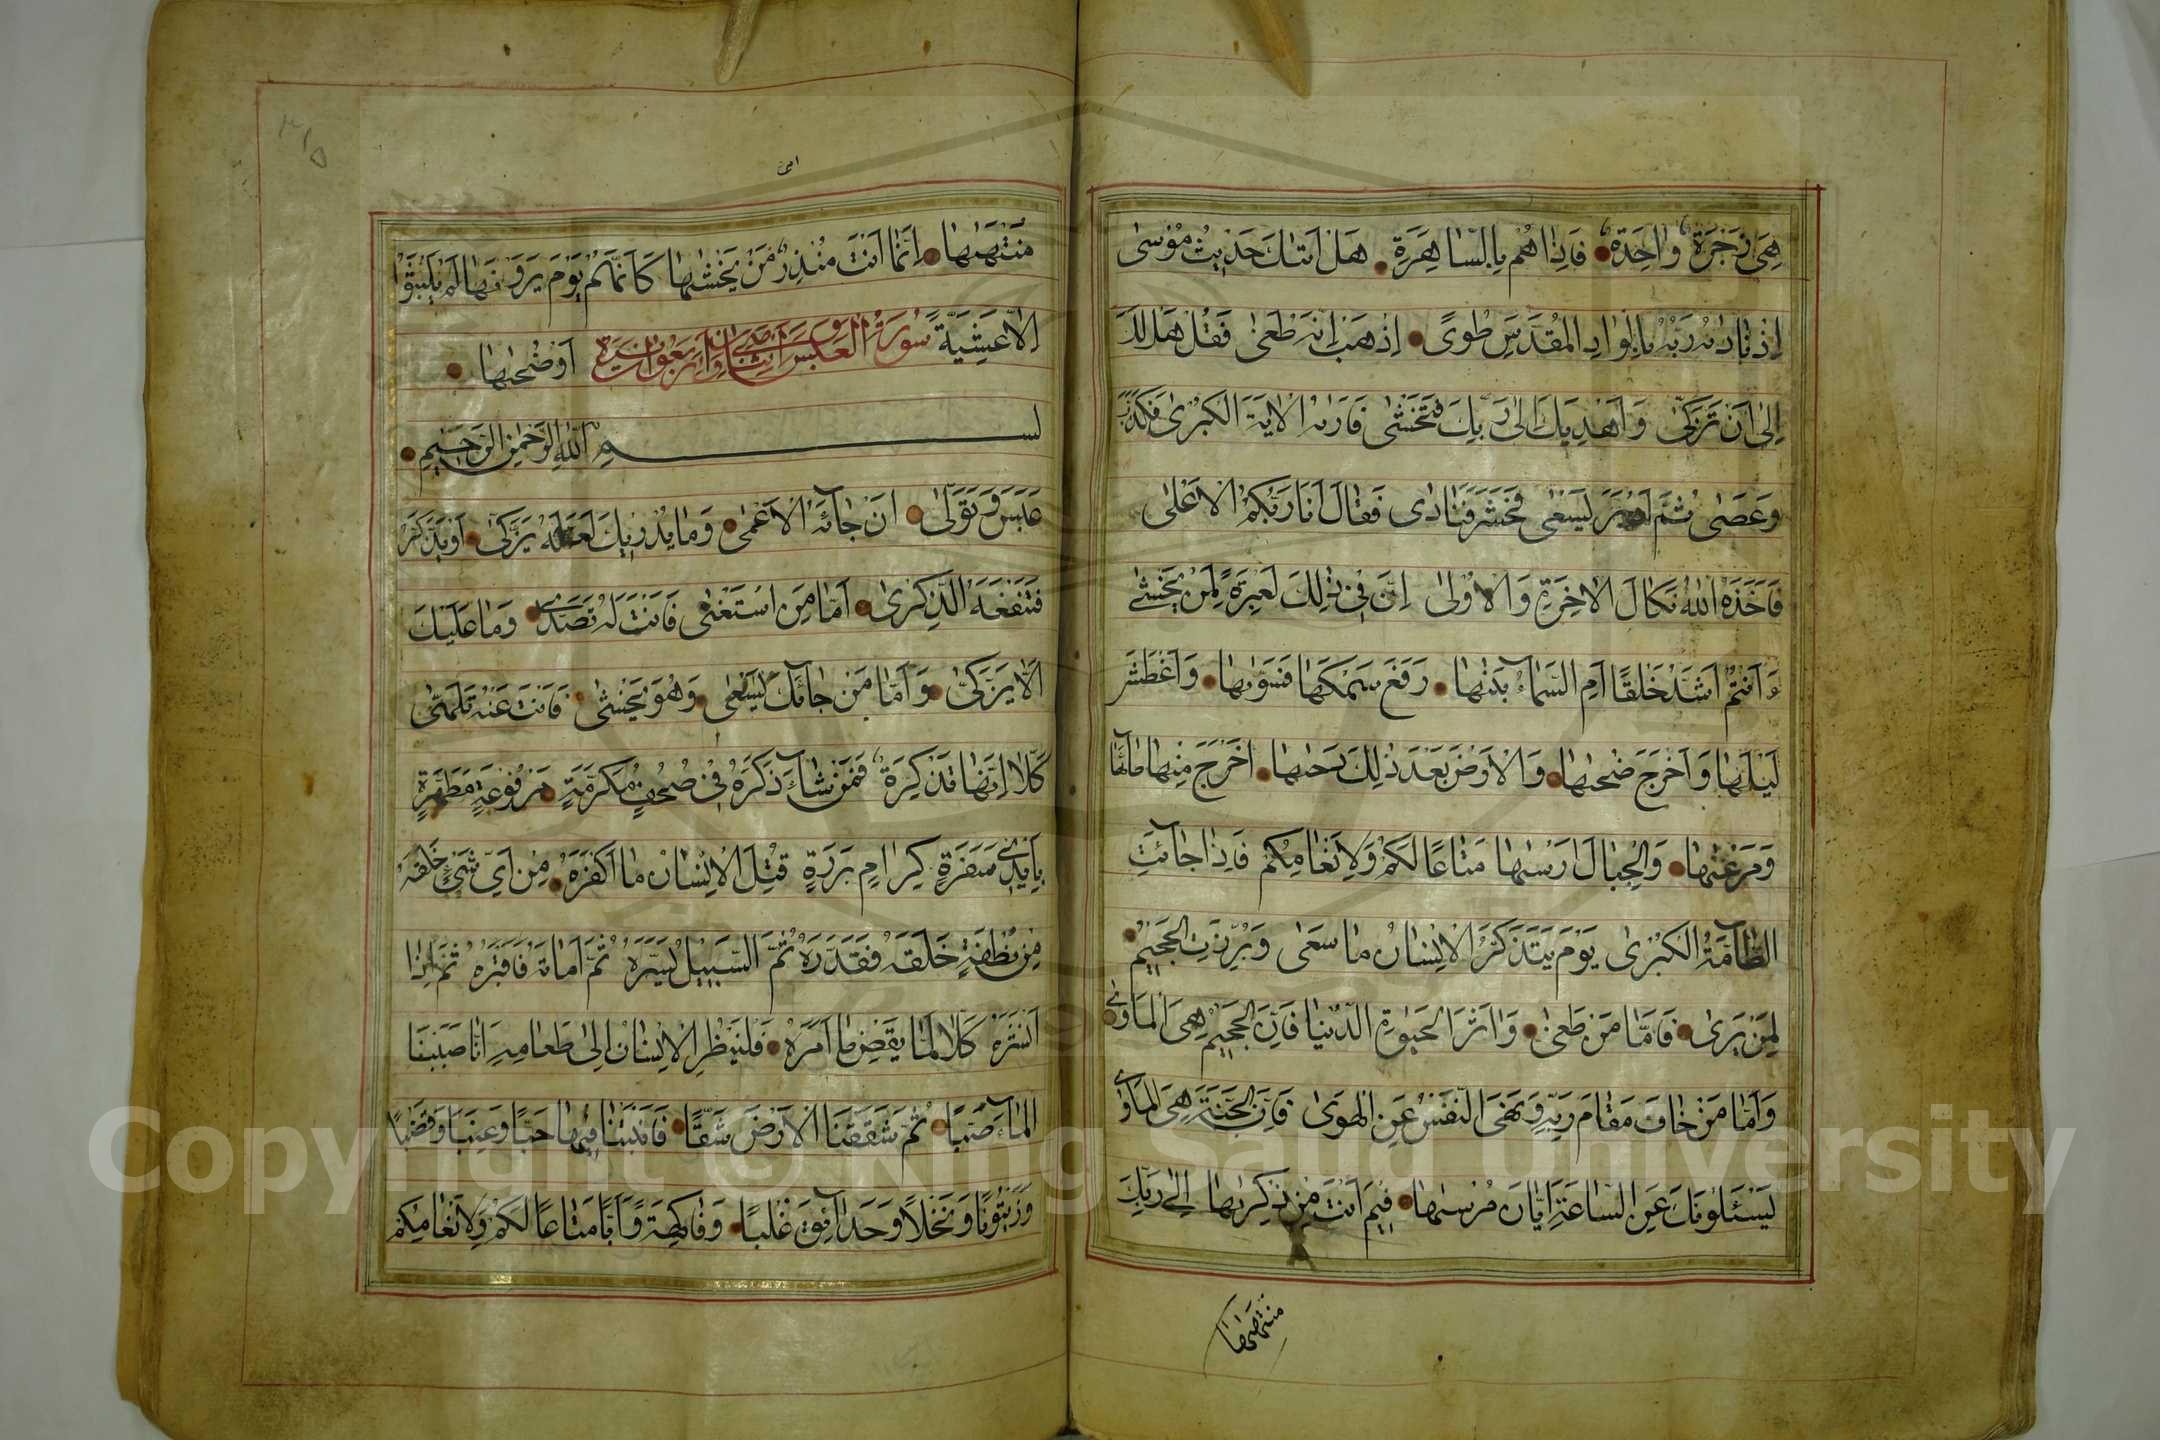 هِيَ زَجْرَةٌ وَاحِدَةٌ فَاِذَا هُمْ بِالسَّاهِرَةِ هَلْ اَتٰىكَ حَدِيثُ مُوْسٰى
اِذْ نَادٰىهُ رَبُّهُ بِالْوَادِ الْمُقَدَّسِ طُوًى اِذْهَبْ اِلٰى فِرْعَوْنَ اِنَّهُ طَغٰى فَقُلْ هَلْ لَكَ
اِلٰى اَنْ تَزَكّٰى وَاَهْدِيَكَ اِلٰى رَبِّكَ فَتَخْشٰى فَاَرٰىهُ الْاٰيَةَ الْكُبْرٰى فَكَذَّبَ
وَعَصٰى ثُمَّ اَدْبَرَ يَسْعٰى فَحَشَرَ فَنَادٰى فَقَالَ اَنَا رَبُّكُمُ الْاَعْلٰى
فَاَخَذَهُ اللّٰهُ نَكَالَ الْاٰخِرَةِ وَالْاُوْلٰى اِنَّ فِيْ ذٰلِكَ لَعِبْرَةً لِمَنْ يَخْشٰى
ءَاَنْتُمْ اَشَدُّ خَلْقًا اَمِ السَّمَاءُ بَنٰىهَا رَفَعَ سَمْكَهَا فَسَوّٰىهَا وَاَغْطَشَ
لَيْلَهَا وَاَخْرَجَ ضُحٰىهَا وَالْاَرْضَ بَعْدَ ذٰلِكَ دَحٰىهَا اَخْرَجَ مِنْهَا مَاءَهَا
وَمَرْعٰىهَا وَالْجِبَالَ اَرْسٰىهَا مَتَاعًا لَكُمْ وَلِاَنْعَامِكُمْ فَاِذَا جَائَتِ
الطَّامَّةُ الْكُبْرٰى يَوْمَ يَتَذَكَّرُ الْاِنْسَانُ مَا سَعٰى وَبُرِّزَتِ الْجَحِيْمُ
لِمَنْ يَرٰى فَاَمَّا مَنْ طَغٰى وَاٰثَرَ الْحَيٰوةَ الدُّنْيَا فَاِنَّ الْجَحِيْمَ هِيَ الْمَاْوٰى
وَاَمَّا مَنْ خَافَ مَقَامَ رَبِّهِ وَنَهَى النَّفْسَ عَنِ الْهَوٰى فَاِنَّ الْجَنَّةَ هِيَ الْمَاْوٰى
يَسْئَلُوْنَكَ عَنِ السَّاعَةِ اَيَّانَ مُرْسٰىهَا فِيْمَ اَنْتَ مِنْ ذِكْرٰىهَا اِلٰى رَبِّكَ
مُنْتَهٰىهَا اِنَّمَا اَنْتَ مُنْذِرُ مَنْ يَخْشٰىهَا كَاَنَّهُمْ يَوْمَ يَرَوْنَهَا لَمْ يَلْبَثُوْا
اِلَّا عَشِيَّةً اَوْ ضُحٰىهَا
سُوْرَةُ الْعَبَسَ
بِسْمِ اللّٰهِ الرَّحْمٰنِ الرَّحِيْمِ
عَبَسَ وَتَوَلّٰى اَنْ جَائَهُ الْاَعْمٰى وَمَا يُدْرِيْكَ لَعَلَّهُ يَزَّكّٰى اَوْ يَذَّكَّرُ
فَتَنْفَعَهُ الذِّكْرٰى اَمَّا مَنِ اسْتَغْنٰى فَاَنْتَ لَهُ تَصَدّٰى وَمَا عَلَيْكَ
اَلَّا يَزَّكّٰى وَاَمَّا مَنْ جَائَكَ يَسْعٰى وَهُوَ يَخْشٰى فَاَنْتَ عَنْهُ تَلَهّٰى
كَلَّا اِنَّهَا تَذْكِرَةٌ فَمَنْ شَاءَ ذَكَرَهُ فِيْ صُحُفٍ مُكَرَّمَةٍ مَرْفُوْعَةٍ مُطَهَّرَةٍ
بِاَيْدِيْ سَفَرَةٍ كِرَامٍ بَرَرَةٍ قُتِلَ الْاِنْسَانُ مَا اَكْفَرَهُ مِنْ اَيِّ شَيْءٍ خَلَقَهُ
مِنْ نُطْفَةٍ خَلَقَهُ فَقَدَّرَهُ ثُمَّ السَّبِيْلَ يَسَّرَهُ ثُمَّ اَمَاتَهُ فَاَقْبَرَهُ ثُمَّ اِذَا
اَنْشَرَهُ كَلَّا لَمَّا يَقْضِ مَا اَمَرَهُ فَلْيَنْظُرِ الْاِنْسَانُ اِلٰى طَعَامِهِ اَنَّا صَبَبْنَا
الْمَاءَ صَبًّا ثُمَّ شَقَقْنَا الْاَرْضَ شَقًّا فَاَنْبَتْنَا فِيْهَا حَبًّا وَعِنَبًا وَقَضْبًا
وَزَيْتُوْنًا وَنَخْلًا وَحَدَائِقَ غُلْبًا وَفَاكِهَةً وَاَبًّا مَتَاعًا لَكُمْ وَلِاَنْعَامِكُمْ
Copyright © King Saud University